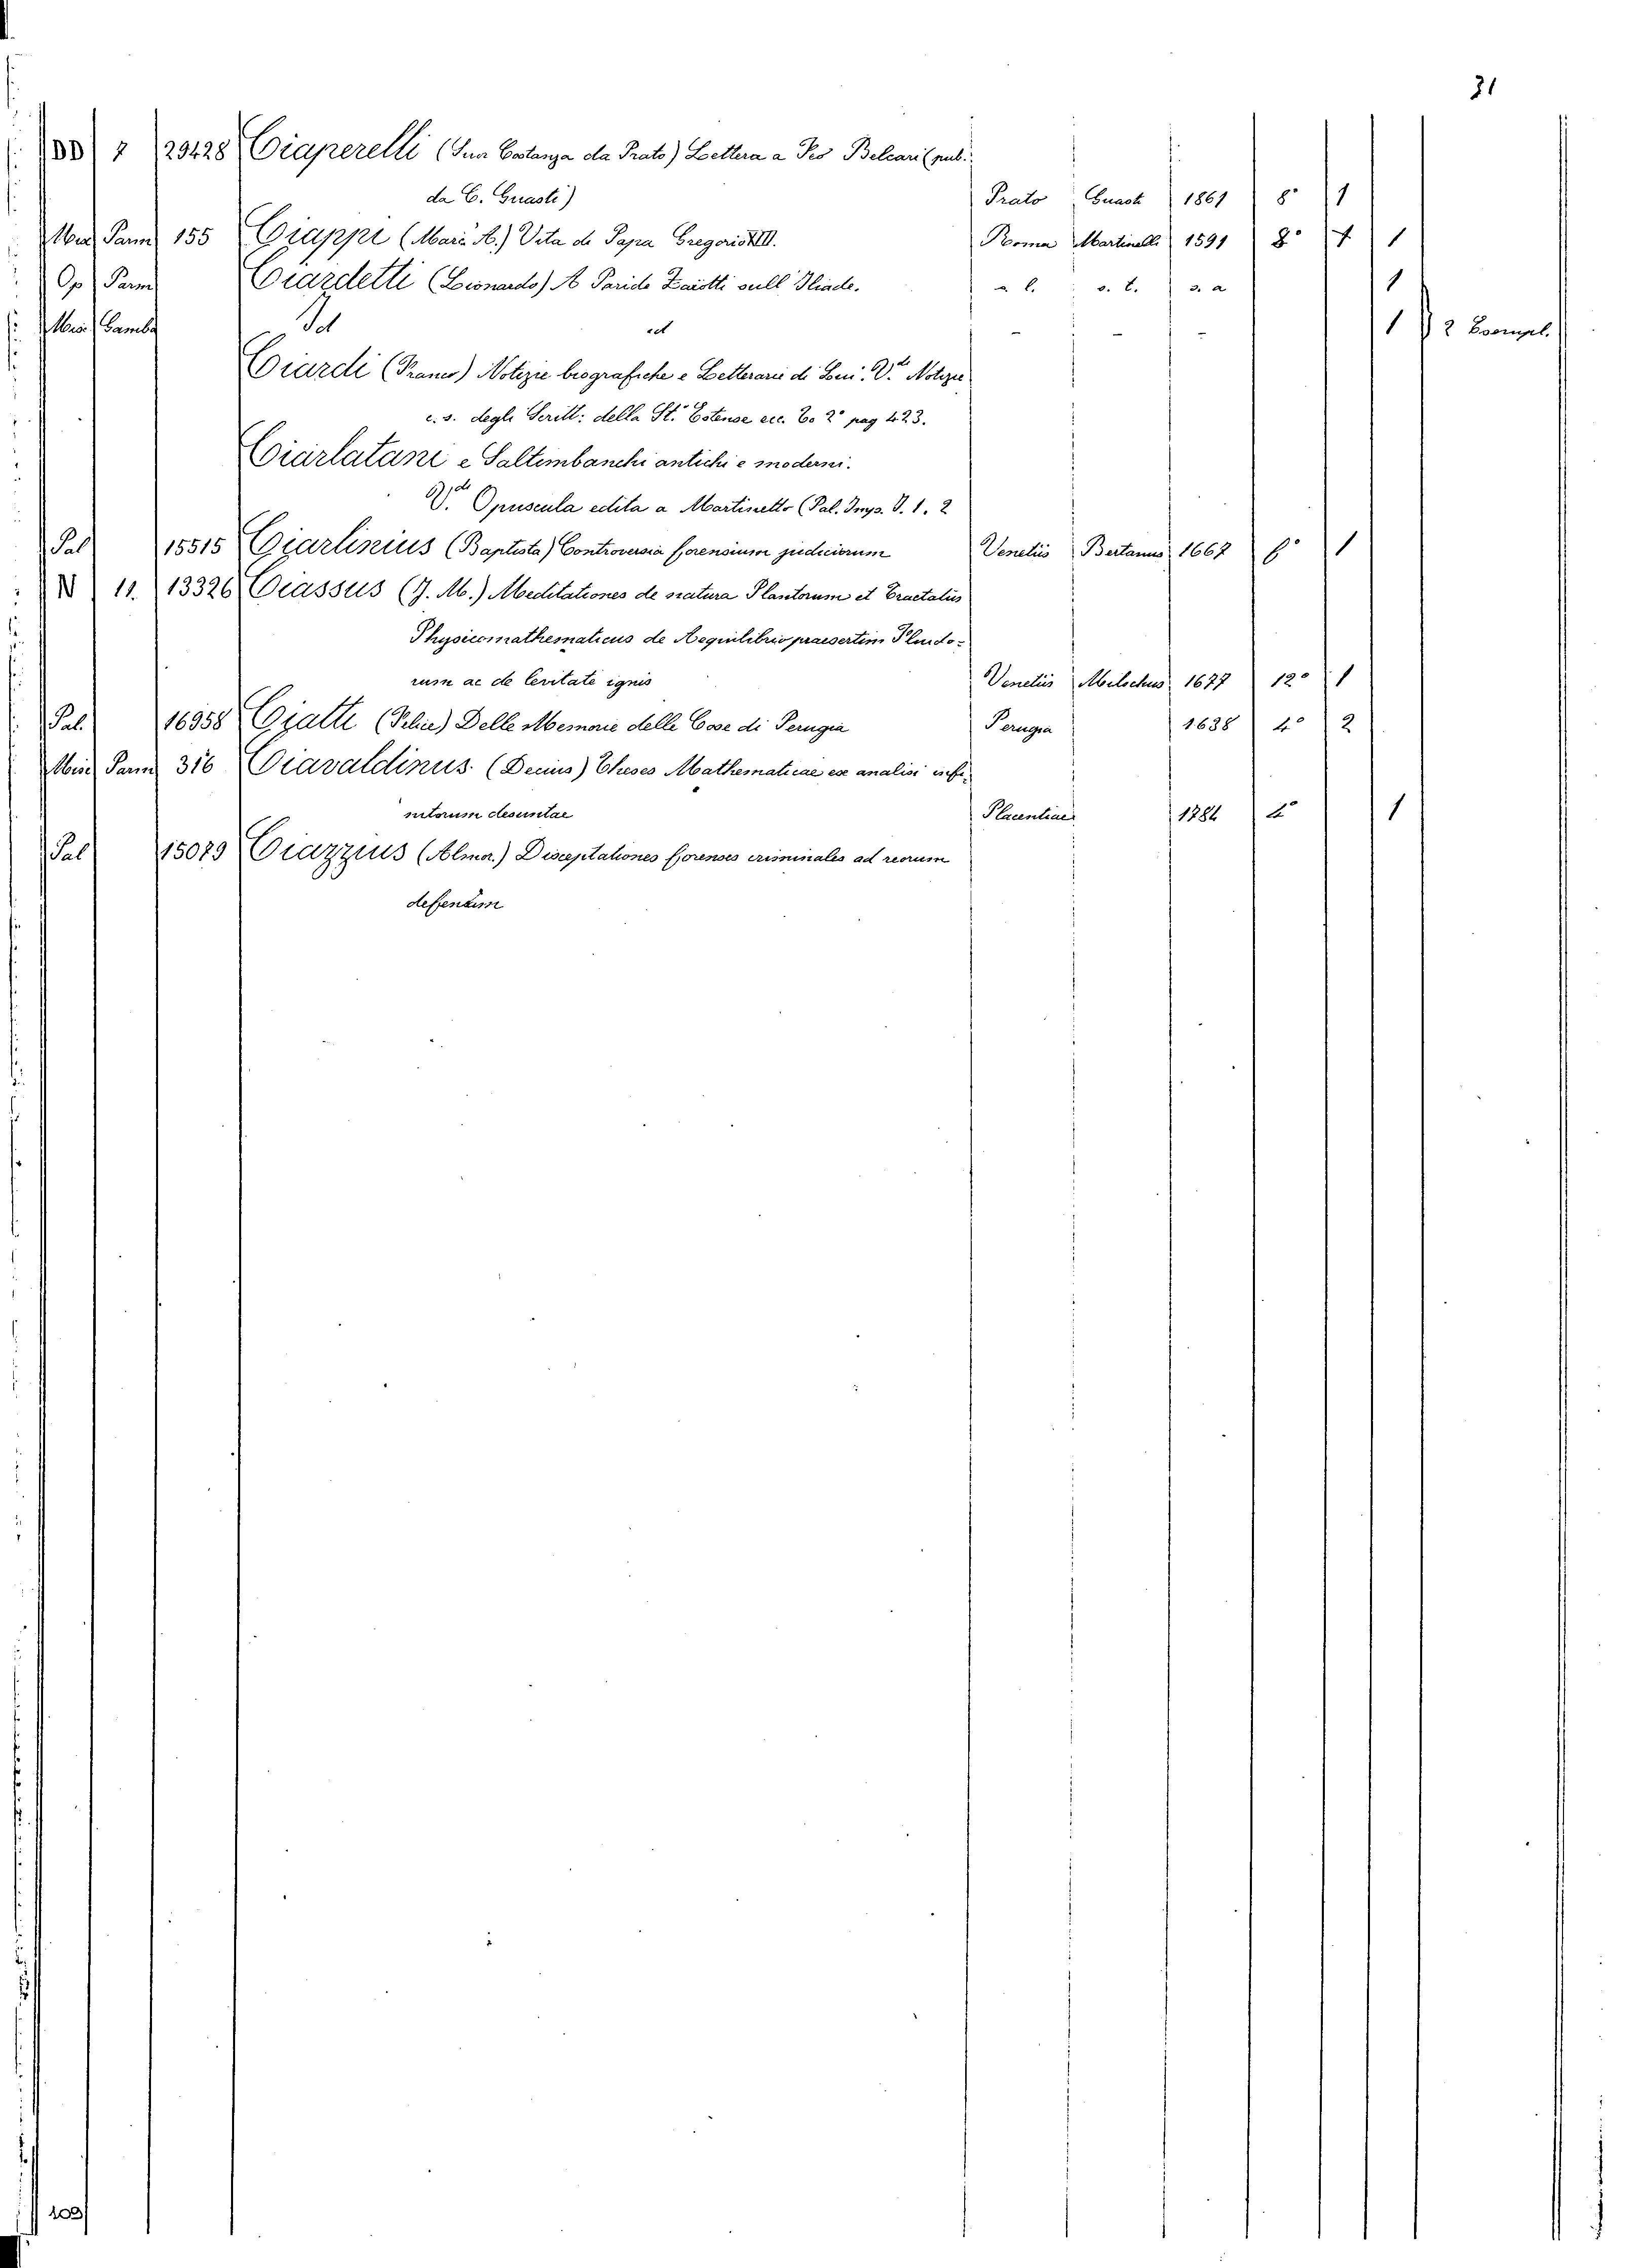 31
DD 7 29428 Ciaperelli (Suor Costanza da Prato) Lettera a Feo Belcari (pub.
da C. Guasti) Prato Guasti 1861 8° 1
Misc Parm 155 Ciappi (Marc A.) Vita di Papa Gregorio XIII. Roma Martinelli 1591 8° 1
Op Parm Ciardetti (Lionardo) A Paride Zaiotti sull Iliade. s. l. s. t. s. a 1
Misc Gamba Id id - - - 1 } 2 Esempl.
Ciardi (Franco) Notizie biografiche e Letterarie di Lui. V.de Notizie
c. s. degli Scritt: della St.° Estense ecc. To 2° pag 423.
Ciarlatani e Saltimbanchi antichi e moderni.
V.de Opuscula edita a Martinetto (Pal. Imp. V. 1. 2
Pal 15515 Ciarlinius (Baptista) Controversia forensium judiciorum Venetiis Bertanus 1667 f° 1
N 11. 13326 Ciassus (J. M.) Meditationes de natura Plantorum et Tractatus
Physicomathematicus de Aequilibrio praesertim Fluido-
rum ac de levitate ignis Venetiis Milochus 1677 12° 1
Pal. 16958 Ciatti (Felice) Delle Memorie delle Cose di Perugia Perugia 1638 4° 2
Misc Parm 316 Ciavaldinus (Decius) Theses Mathematicae ex analisi infi-
nitorum desuntae Placentiae 1784 4° 1
Pal 15079 Ciazzius (Almor.) Disceptationes forenses criminales ad reorum
deffensim
109